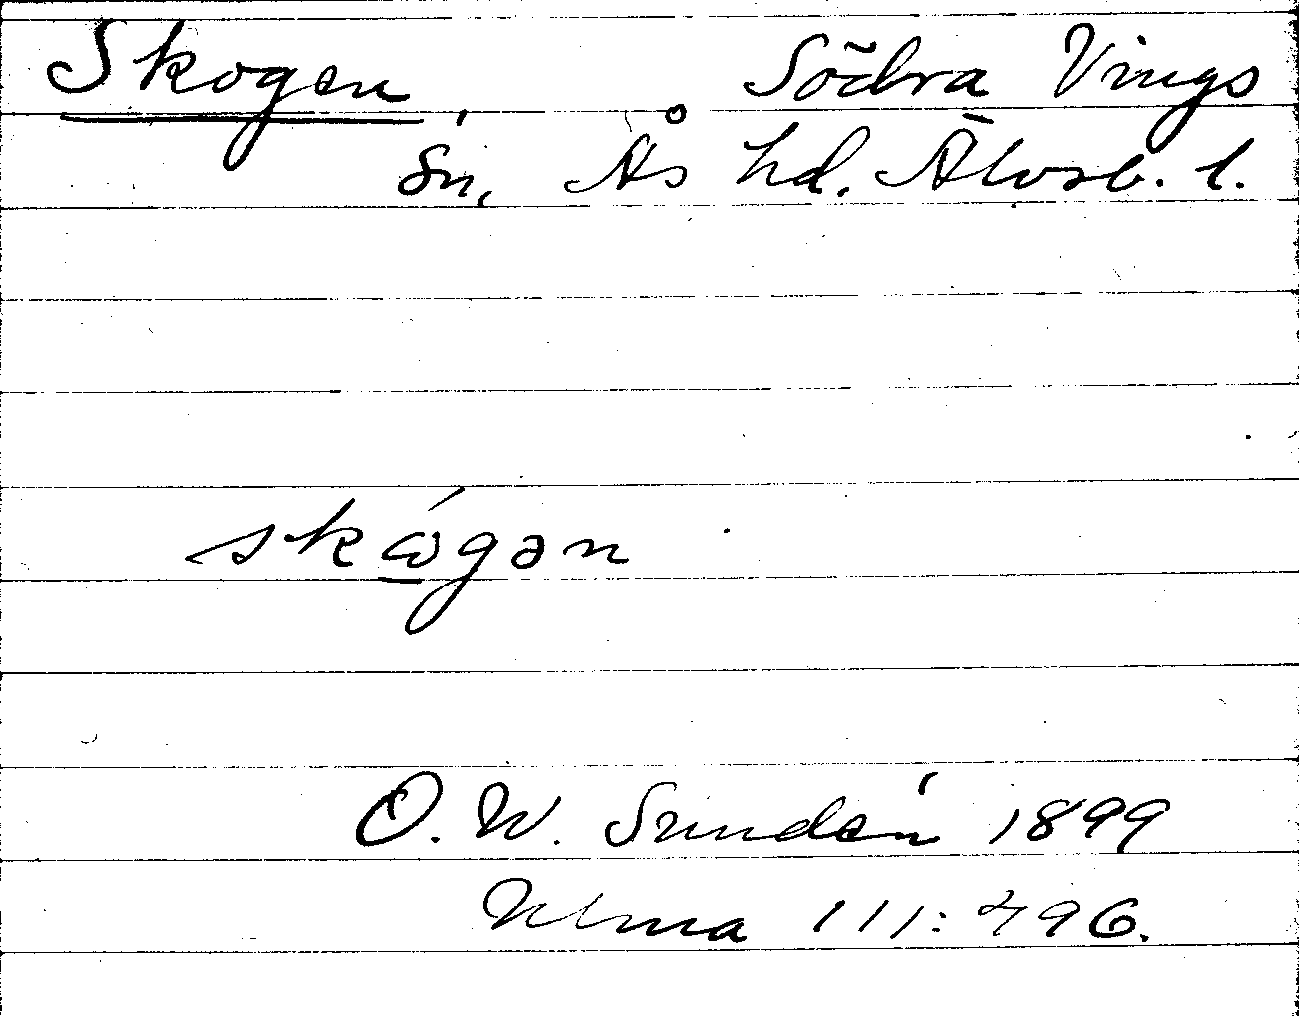 Skogen Södra Vings
sn, Ås hd. Älvsb. l.
skώ̲gən
O. W. Sundén 1899
Ulma 111:796.